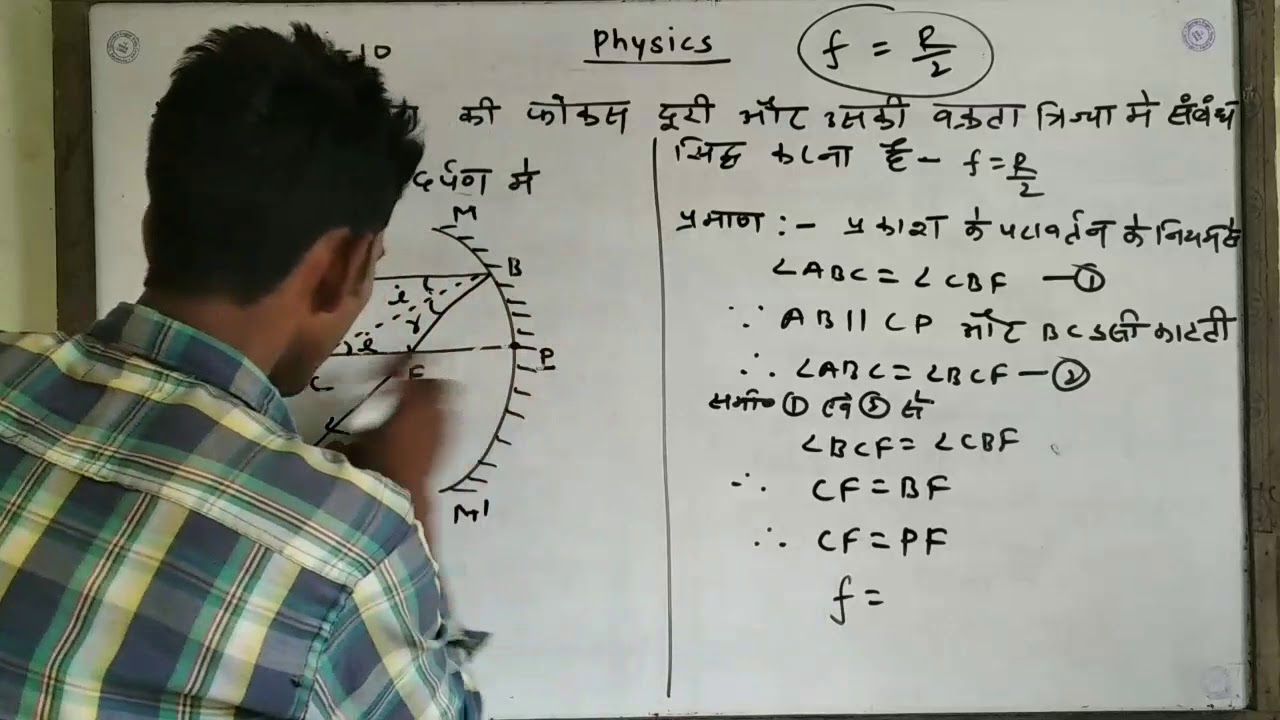 -10
Physics
f = R/2
की फोकस दूरी और उसकी वक्रता त्रिज्या मे संबंध
दर्पण मे
M
B
i
r
i
C
F
P
M'
सिद्ध करना है - f = R/2
प्रमाण :- प्रकाश के परावर्तन के नियम से
∠ABC = ∠CBF —①
∵ AB || CP और BC उसी काटती
∴ ∠ABC = ∠BCF —②
समी० ① एवं ② से
∠BCF = ∠CBF
∴ CF = BF
∴ CF = PF
f =